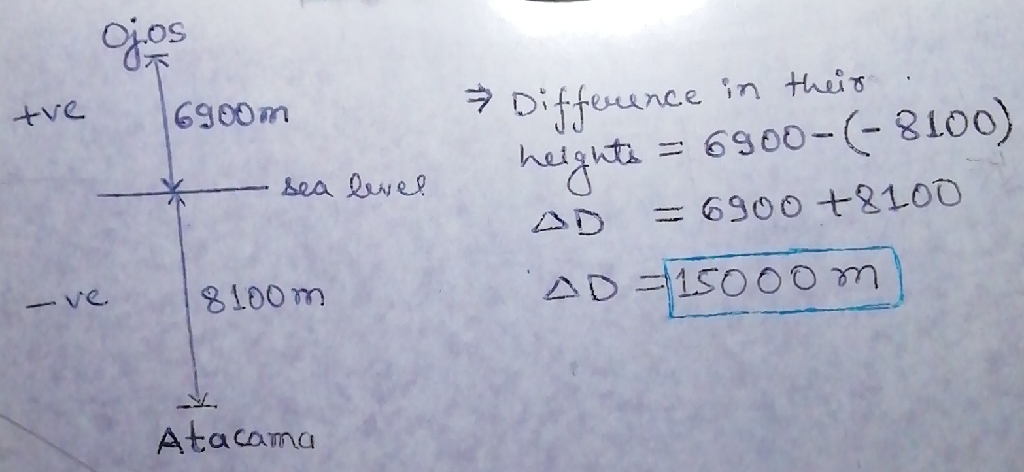 Ojos
+ve
6900m
sea level
-ve
8100m
Atacama
⇒ Difference in their
heights = 6900-(-8100)
△D = 6900 +8100
△D = 15000 m